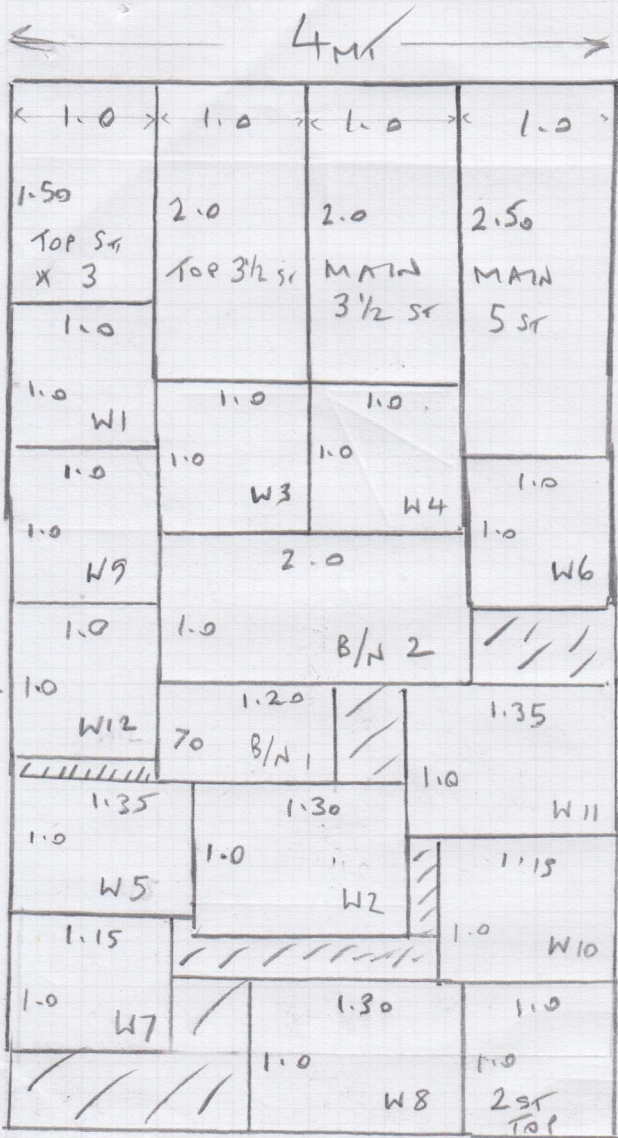 4 MT
1.0 1.0 1.0 1.0
1.50
TOP ST
x 3
2.0
TOP 3 1/2 ST
2.0
MAIN
3 1/2 ST
2.50
MAIN
5 ST
1.0
1.0
W1
1.0
1.0
W3
1.0
1.0
W4
1.0
1.0
W6
1.0
1.0
W9
2.0
1.0
B/N 2
1.0
1.0
W12
1.20
70
B/N 1
1.35
1.0
W11
1.35
1.0
W5
1.30
1.0
W2
1.15
1.0
W10
1.15
1.0
W7
1.30
1.0
W8
1.0
1.0
2 ST
TOP